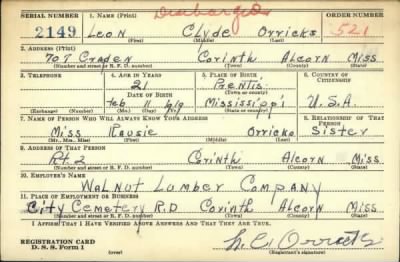 Discharged
SERIAL NUMBER 1. NAME (Print) ORDER NUMBER
2149 Leon Clyde Orricks 521
(First) (Middle) (Last)
2. ADDRESS (Print)
707 Craden Corinth Alcorn Miss
(Number and street or R. F. D. number) (Town) (County) (State)
3. TELEPHONE 4. AGE IN YEARS 5. PLACE OF BIRTH 6. COUNTRY OF CITIZENSHIP
21 Prentis
DATE OF BIRTH (Town or county)
Feb 11 1919 Mississippi U.S.A.
(Exchange) (Number) (Mo.) (Day) (Yr.) (State or country)
7. NAME OF PERSON WHO WILL ALWAYS KNOW YOUR ADDRESS 8. RELATIONSHIP OF THAT PERSON
Miss Rausie Orricks Sister
(Mr., Mrs., Miss) (First) (Middle) (Last)
9. ADDRESS OF THAT PERSON
Rt. 2 Corinth Alcorn Miss
(Number and street or R. F. D. number) (Town) (County) (State)
10. EMPLOYER'S NAME
Walnut Lumber Company
11. PLACE OF EMPLOYMENT OR BUSINESS
City Cemetery R.D Corinth Alcorn Miss
(Number and street or R. F. D. number) (Town) (County) (State)
I AFFIRM THAT I HAVE VERIFIED ABOVE ANSWERS AND THAT THEY ARE TRUE.
REGISTRATION CARD
D. S. S. Form 1 (over) L. C. Orricks
(Registrant's signature)